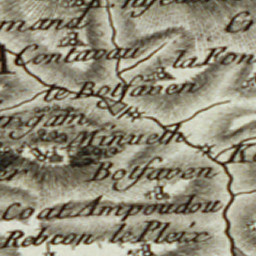 mand
Contavau
la Fon
le Botfaven
Minuelh
Botfaven
Coat Ampoudou
Rebcon le Pleix